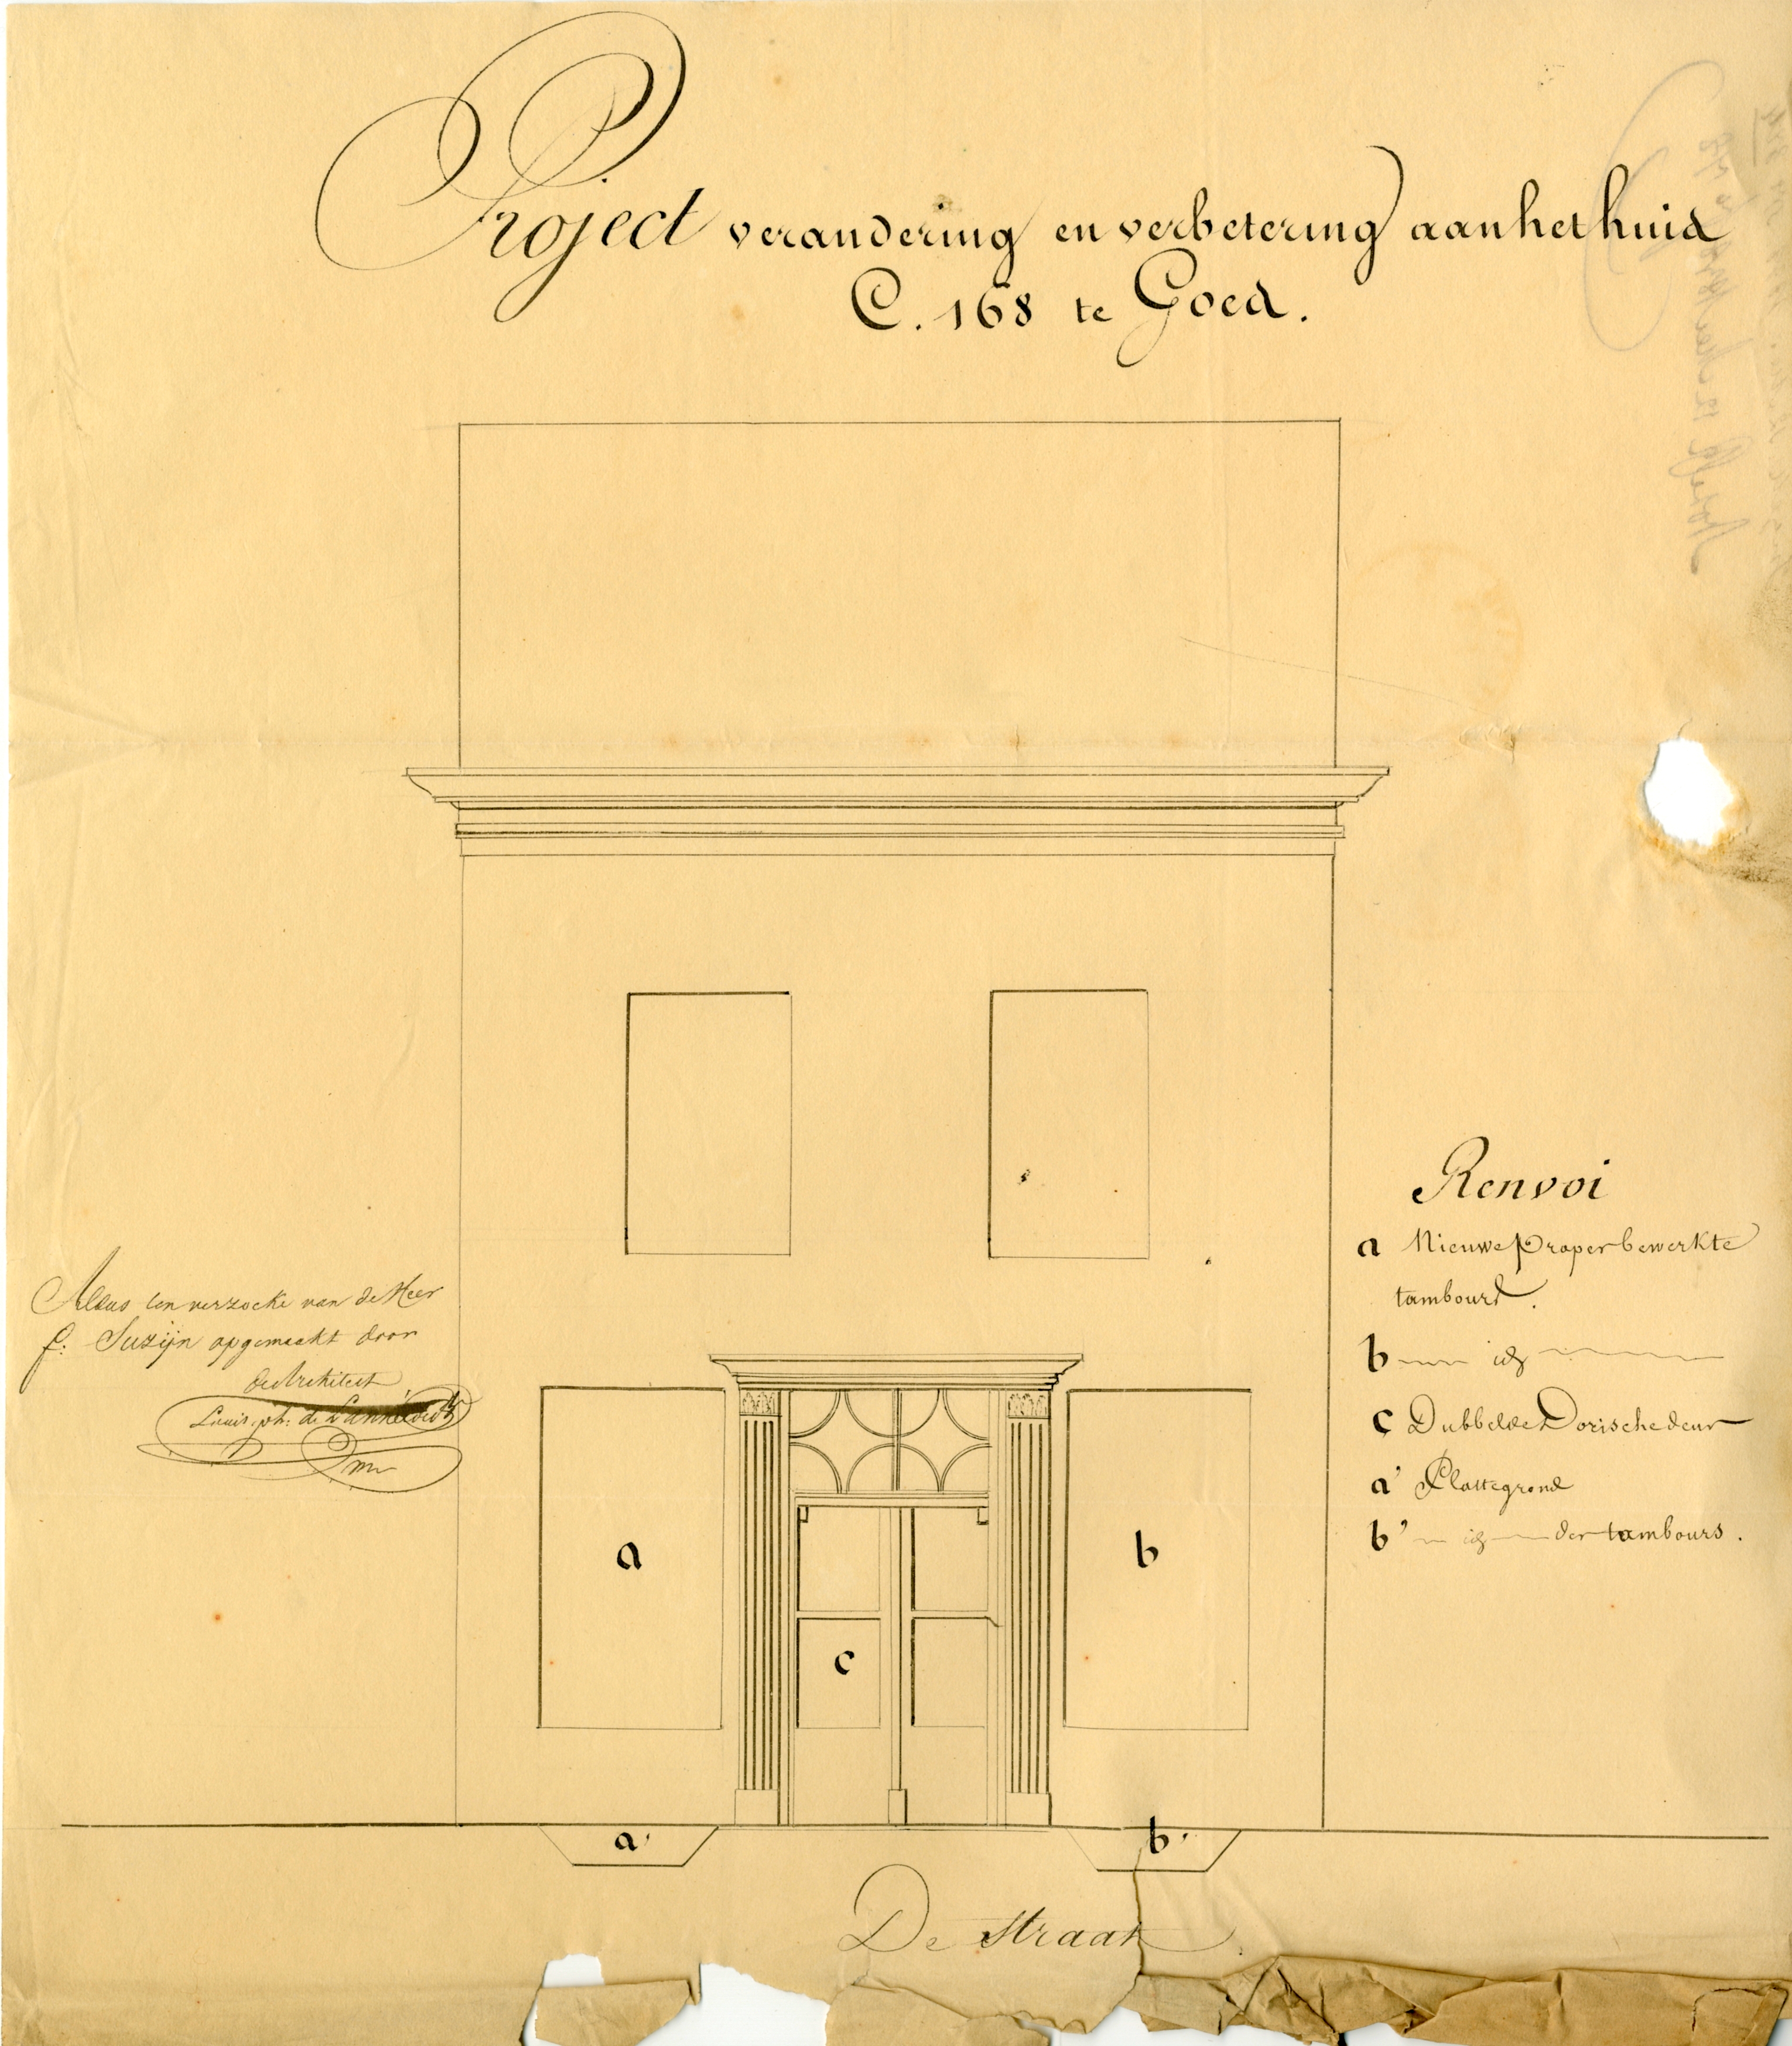 Project verandering en verbetering aan het huis
C. 168 te Goes.
Renvoi
a Nieuwe Proper bewerkte
tambours.
b — id —
c Dubbelde Dorische deur
a' Plattegrond
b' — id — der tambours.
Aldus ten verzoeke van de Heer
f: Suzijn opgemaakt door
de Architect
Louis. ph: de
a
b
c
a'
b'
De straat